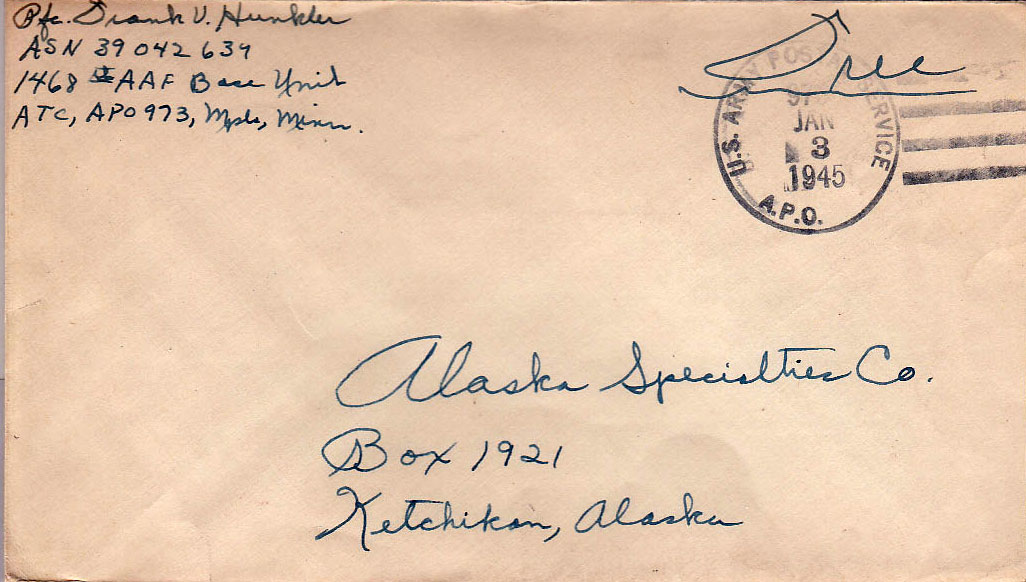 Pfc. Frank V. Hunkler
ASN 39 042 639
1468 AAF Base Unit
ATC, APO 973, Mpls, Minn.
Free
U.S. ARMY POSTAL SERVICE
JAN
3
1945
A.P.O.
Alaska Specialties Co.
Box 1921
Ketchikan, Alaska